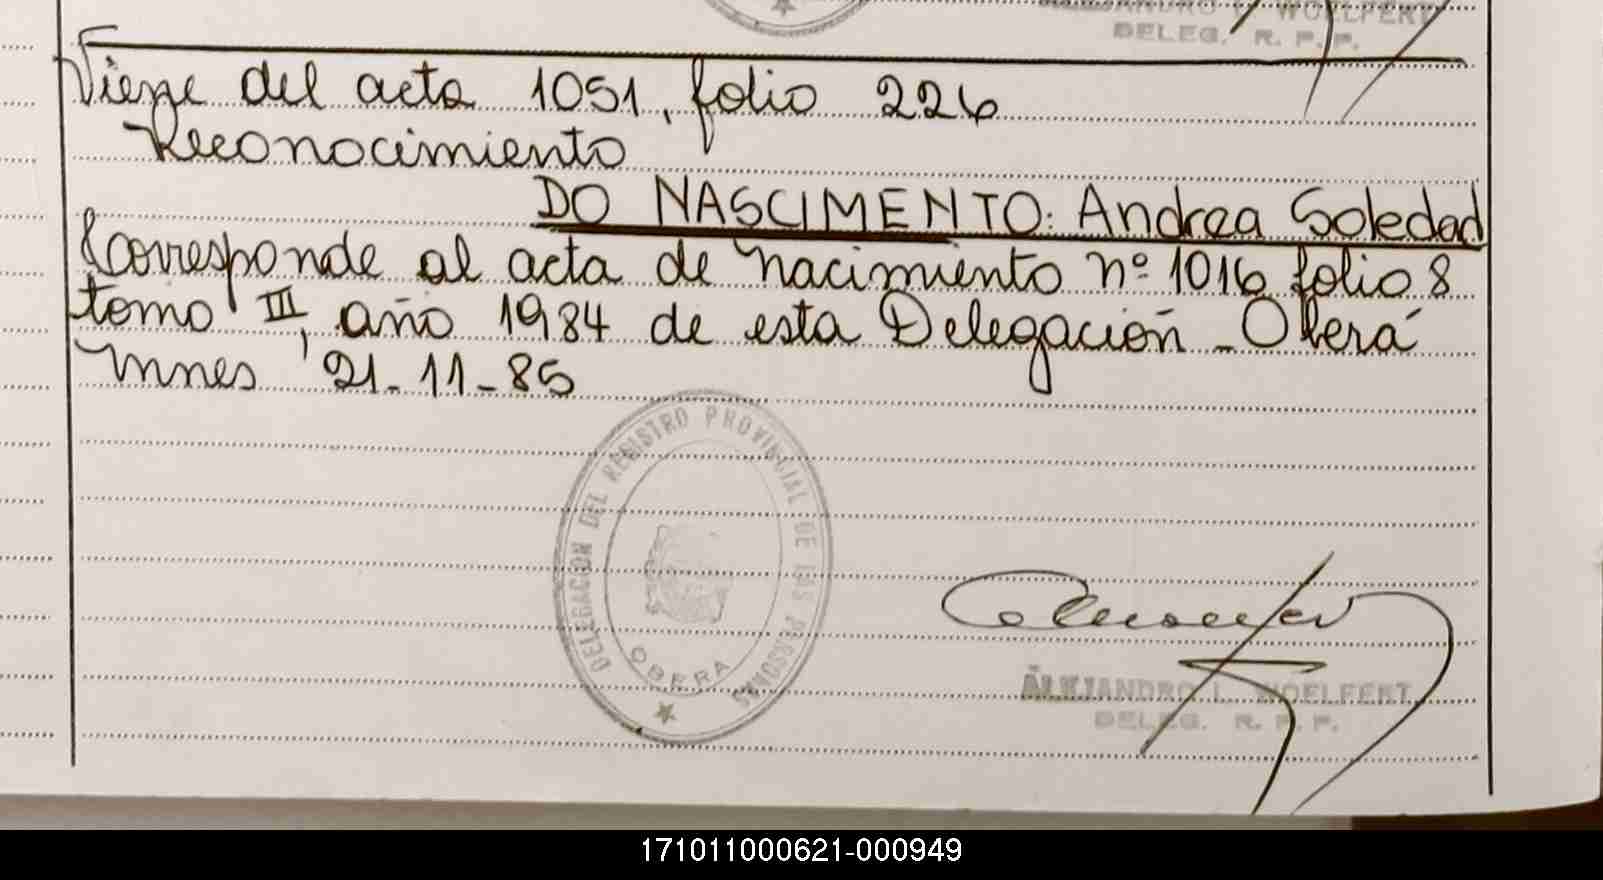 ALEJANDRO L. WOELFERT
DELEG. R. P. P.
Viene del acta 1051, folio 226
Reconocimiento
DO NASCIMENTO: Andrea Soledad
Corresponde al acta de nacimiento nº 1016 folio 8
tomo III, año 1984 de esta Delegación - Oberá
Mnes 21-11-85
DELEGACION DEL REGISTRO PROVINCIAL DE LAS PERSONAS
OBERA
ALEJANDRO L. WOELFERT
DELEG. R. P. P.
171011000621-000949